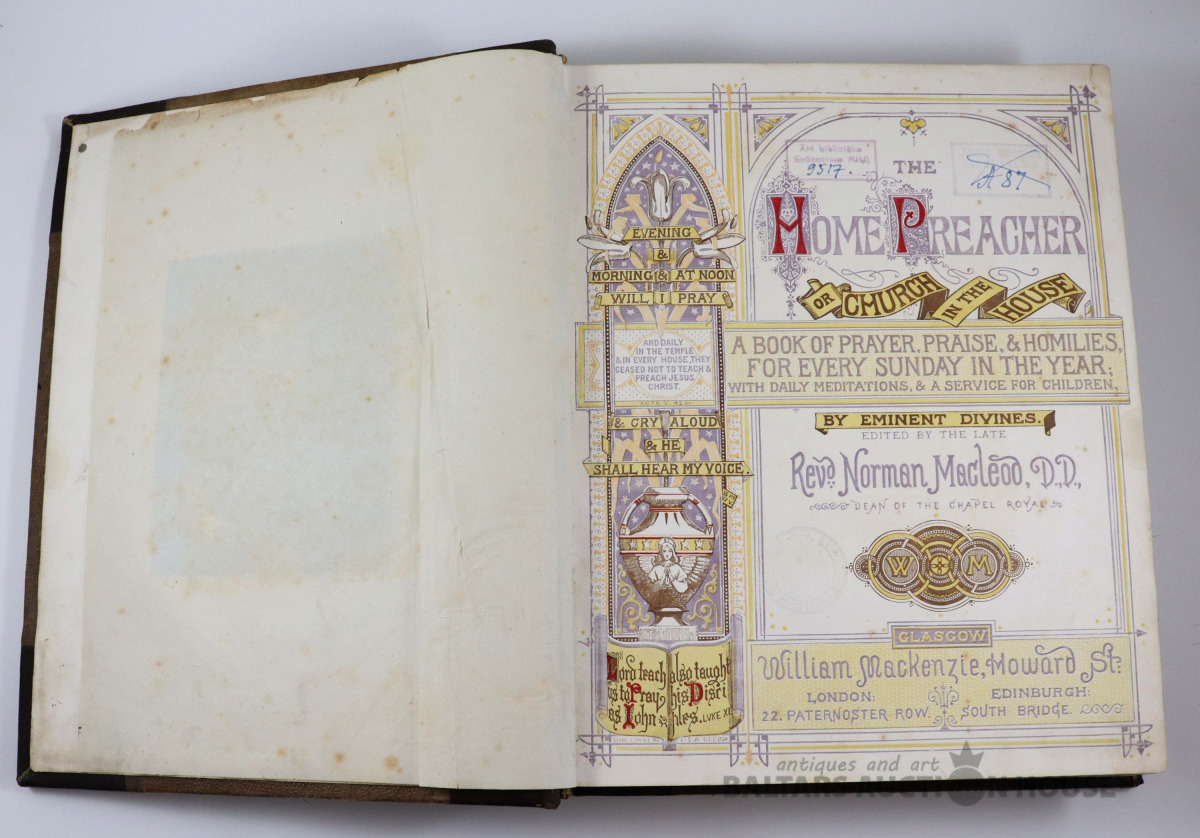 EVENING
&
MORNING & AT NOON
WILL I PRAY
AND DAILY
IN THE TEMPLE
& IN EVERY HOUSE, THEY
CEASED NOT TO TEACH &
PREACH JESUS
CHRIST.
ACTS V. 42
& CRY ALOUD
& HE
SHALL HEAR MY VOICE.
Lord teach
us to Pray
as Iohn
also taught
his Disci
ples. LVKE XI.
9517.
THE
HOME PREACHER
OR CHURCH IN THE HOUSE
A BOOK OF PRAYER, PRAISE, & HOMILIES,
FOR EVERY SUNDAY IN THE YEAR;
WITH DAILY MEDITATIONS, & A SERVICE FOR CHILDREN,
BY EMINENT DIVINES.
EDITED BY THE LATE
Revd. Norman Macleod, D.D.,
DEAN OF THE CHAPEL ROYAL
W M
GLASGOW
William Mackenzie, Howard St:
LONDON: EDINBURGH:
22. PATERNOSTER ROW. SOUTH BRIDGE
antiques and art
BALTARS AUCTION HOUSE